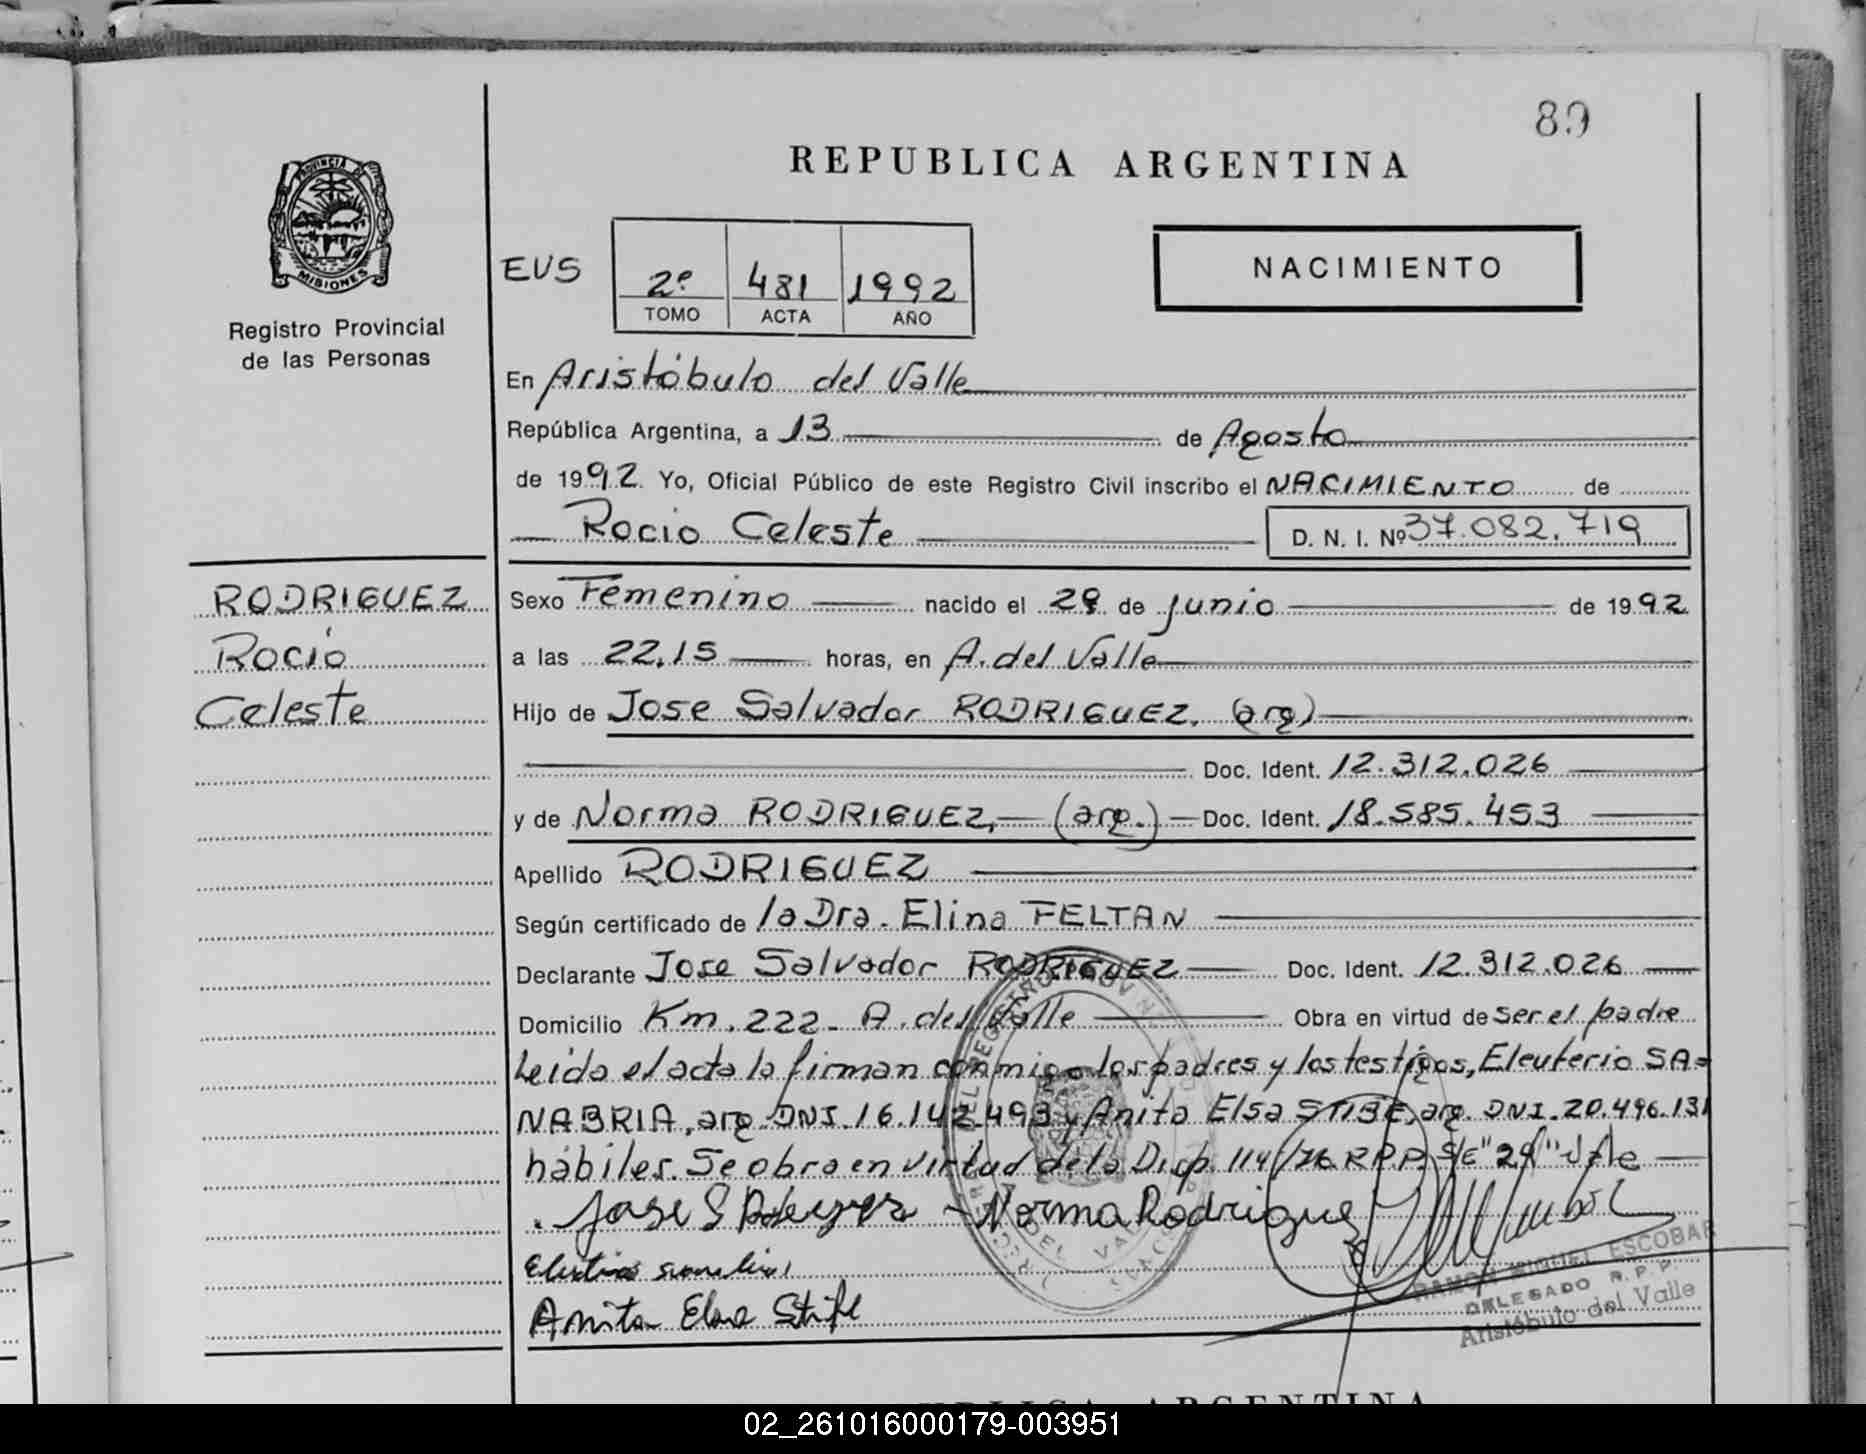 89
REPUBLICA ARGENTINA
PROVINCIA DE
MISIONES
Registro Provincial
de las Personas
EUS
2º 481 1992
TOMO ACTA AÑO
NACIMIENTO
En Aristóbulo del Valle
República Argentina, a 13 de Agosto
de 1992. Yo, Oficial Público de este Registro Civil inscribo el NACIMIENTO de
Rocio Celeste D. N. I. Nº 37.082.719
RODRIGUEZ
Rocio
Celeste
Sexo Femenino nacido el 29 de junio de 1992
a las 22,15 horas, en A. del Valle
Hijo de Jose Salvador RODRIGUEZ. (arg)
Doc. Ident. 12.312.026
y de Norma RODRIGUEZ, (arg.) Doc. Ident. 18.585.453
Apellido RODRIGUEZ
Según certificado de la Dra. Elina FELTAN
Declarante Jose Salvador RODRIGUEZ Doc. Ident. 12.312.026
Domicilio Km. 222 - A. del Valle Obra en virtud de ser el padre
Leida el acta la firman conmigo los padres y los testigos, Eleuterio SA=
NABRIA, arg. DNI. 16.142.493 y Anita Elsa STIBE, arg. DNI. 20.496.131
hábiles. Se obra en virtud de la Disp. 114/76 R.P.P. S/E "29" Vale
Jose S Norma Rodriguez
RAMON MIGUEL ESCOBAR
DELEGADO R.P.P.
Aristóbulo del Valle
Anita Elsa
02_261016000179-003951